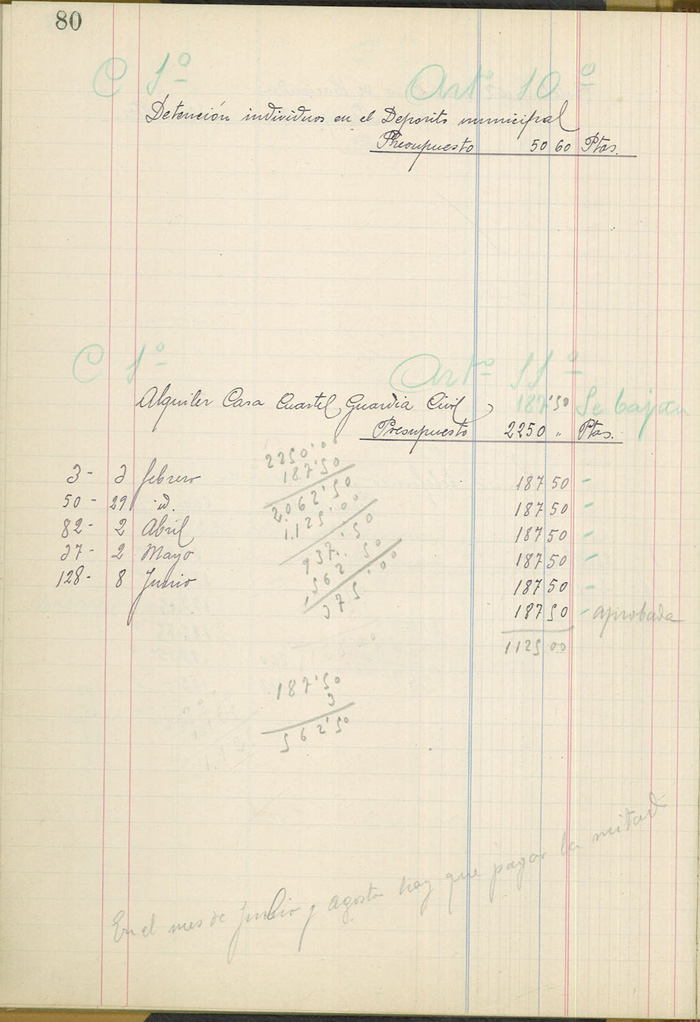 80
C 1º Artº 10º
Detención individuos en el Deposito municipal
Presupuesto 50 60 Ptas.
C 1º Artº 11º
187'50 Se bajan
Alquiler Casa Cuartel Guardia Civil,
Presupuesto 2250 " Ptas.
2250'00
187'50
3 - 3 febrero 187 50 -
2.062'50
50 - 29 id. 187 50 -
1.125'00
82 - 2 Abril 187 50 -
937'50
37 - 2 Mayo 187 50 -
562'50
128 - 8 Junio 187 50 -
375'00
187 50 - aprobada
1125 00
187'50
3
562'50
En el mes de Junio y agosto hay que pagar la mitad